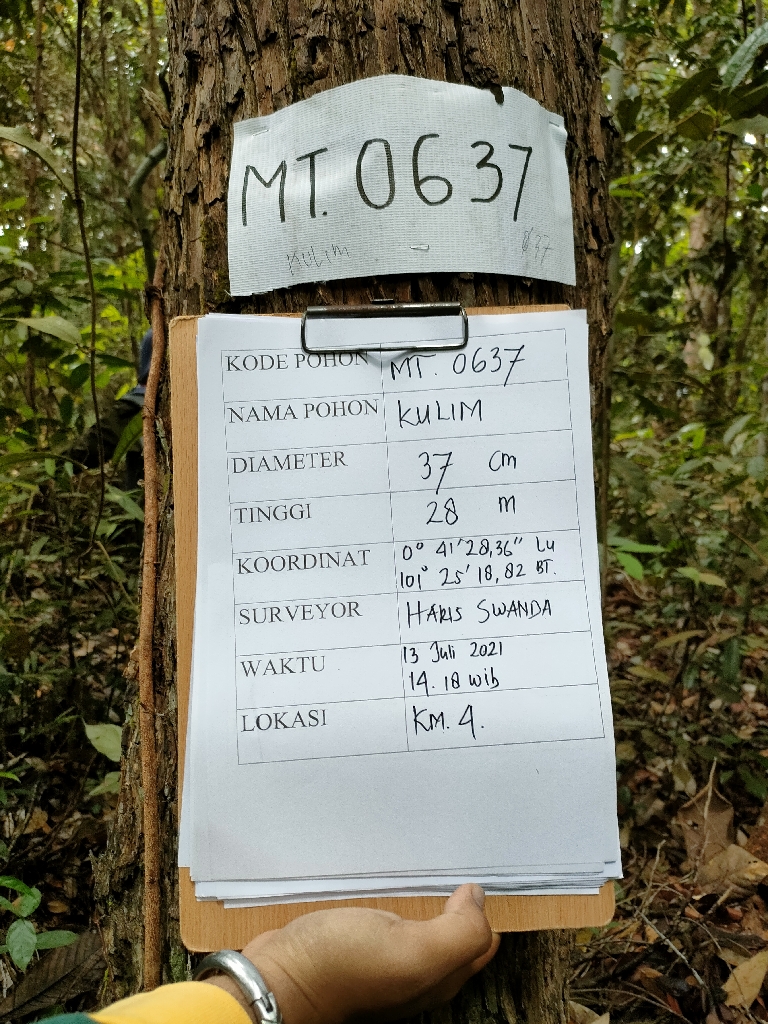 MT. 0637
KULIM 637
KODE POHON MT. 0637
NAMA POHON KULIM
DIAMETER 37 cm
TINGGI 28 m
KOORDINAT 0° 41' 28,36" LU
101° 25' 18,82 BT.
SURVEYOR HARIS SWANDA
WAKTU 13 Juli 2021
14.18 wib
LOKASI KM. 4.